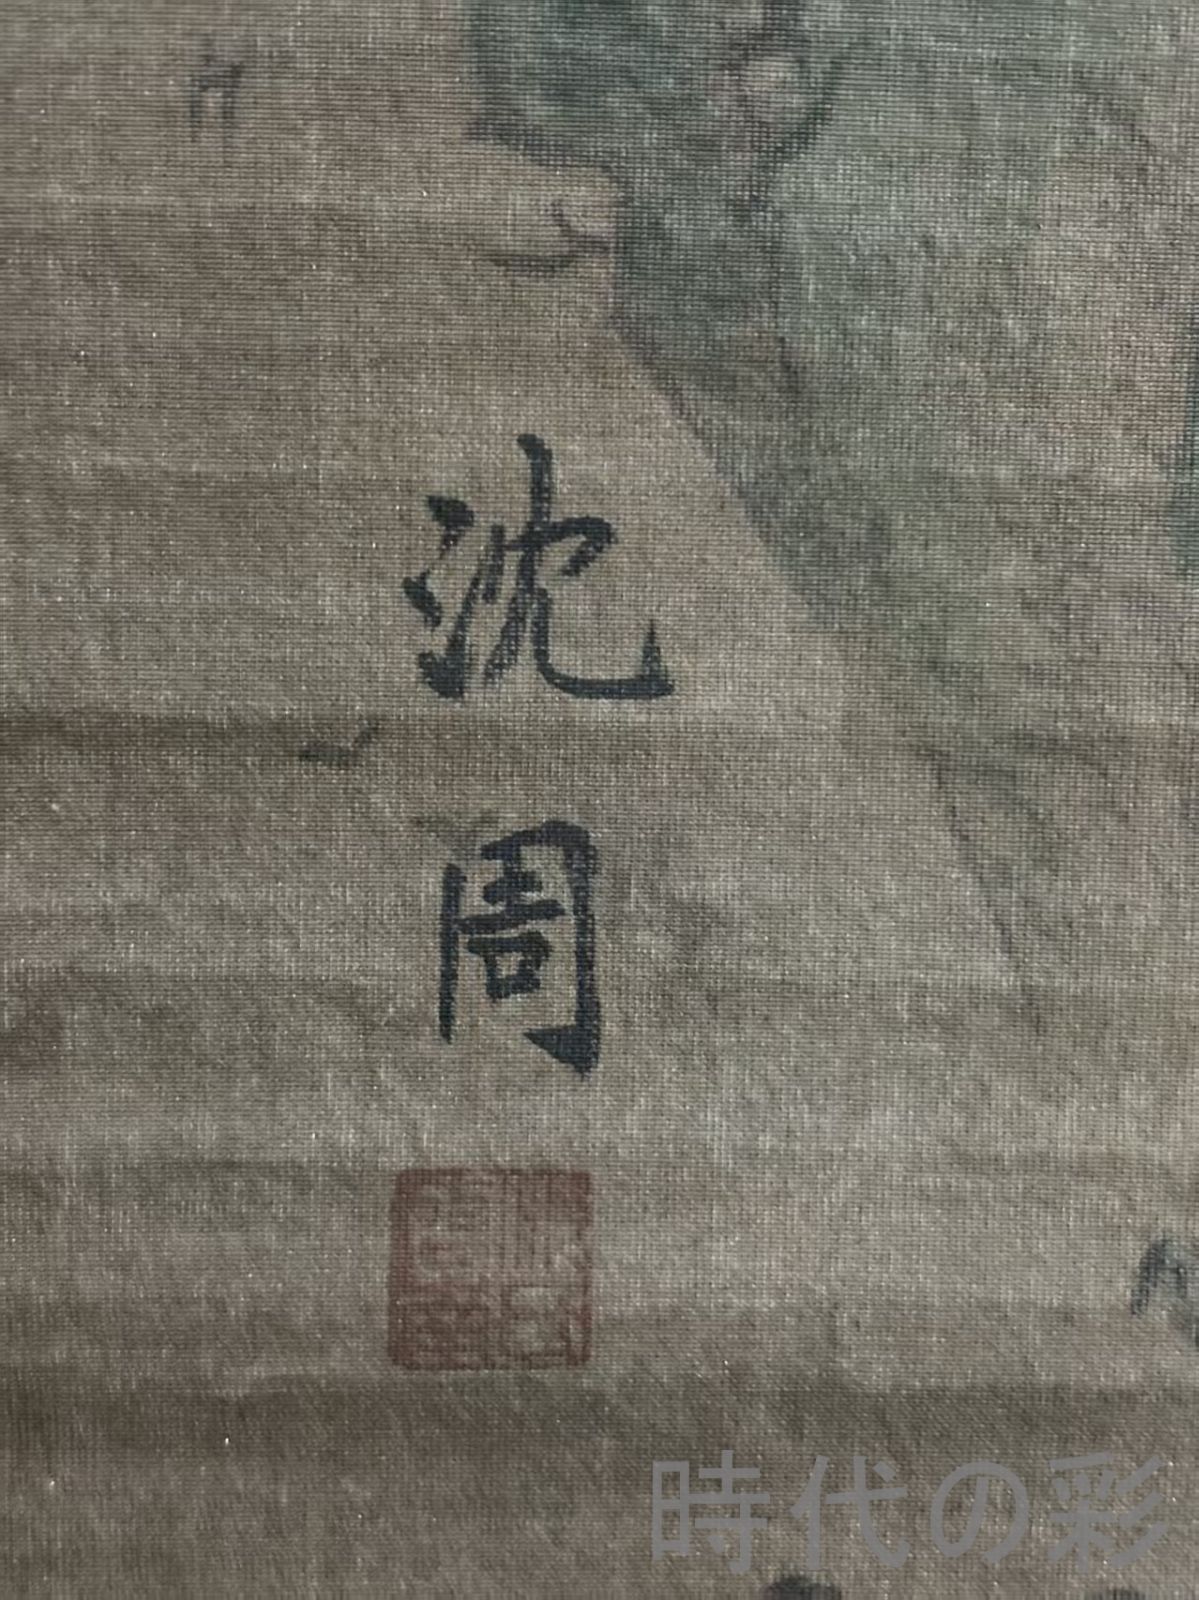 沈周
時代の彩